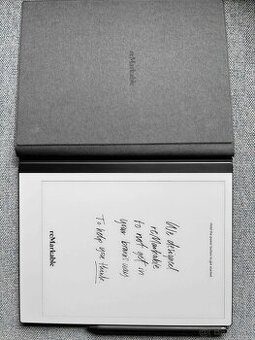 reMarkable
We designed
reMarkable
to not get in
your brain's way.
To help you think.
reMarkable